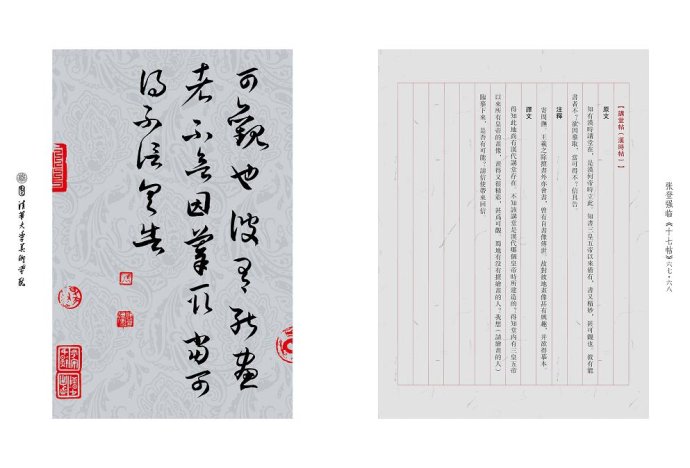 可觀也彼有能畫
者不欲因摹取當可
得不信具告
清華大學美術學院
【講堂帖（漢時帖）】
原文
知有漢時講堂在，是漢何帝時立此，知畫三皇五帝以來備有，畫又精妙，甚可觀也，彼有能
畫者不？欲因摹取，當可得不？信具告
注釋
王羲之除擅書外亦會畫，曾有自畫像傳世，故對彼地畫像甚有興趣，并欲得摹本
譯文
得知此地尚有漢代講堂存在，不知該講堂是漢代哪個皇帝時所建造的，得知堂內有三皇五帝
以來所有皇帝的畫像，畫得又很精彩，甚爲可觀，那地有沒有擅繪畫的人？我想（請繪畫的人）
臨摹下來，是否有可能？請信使帶來回信
张登强临《十七帖》六七·六八